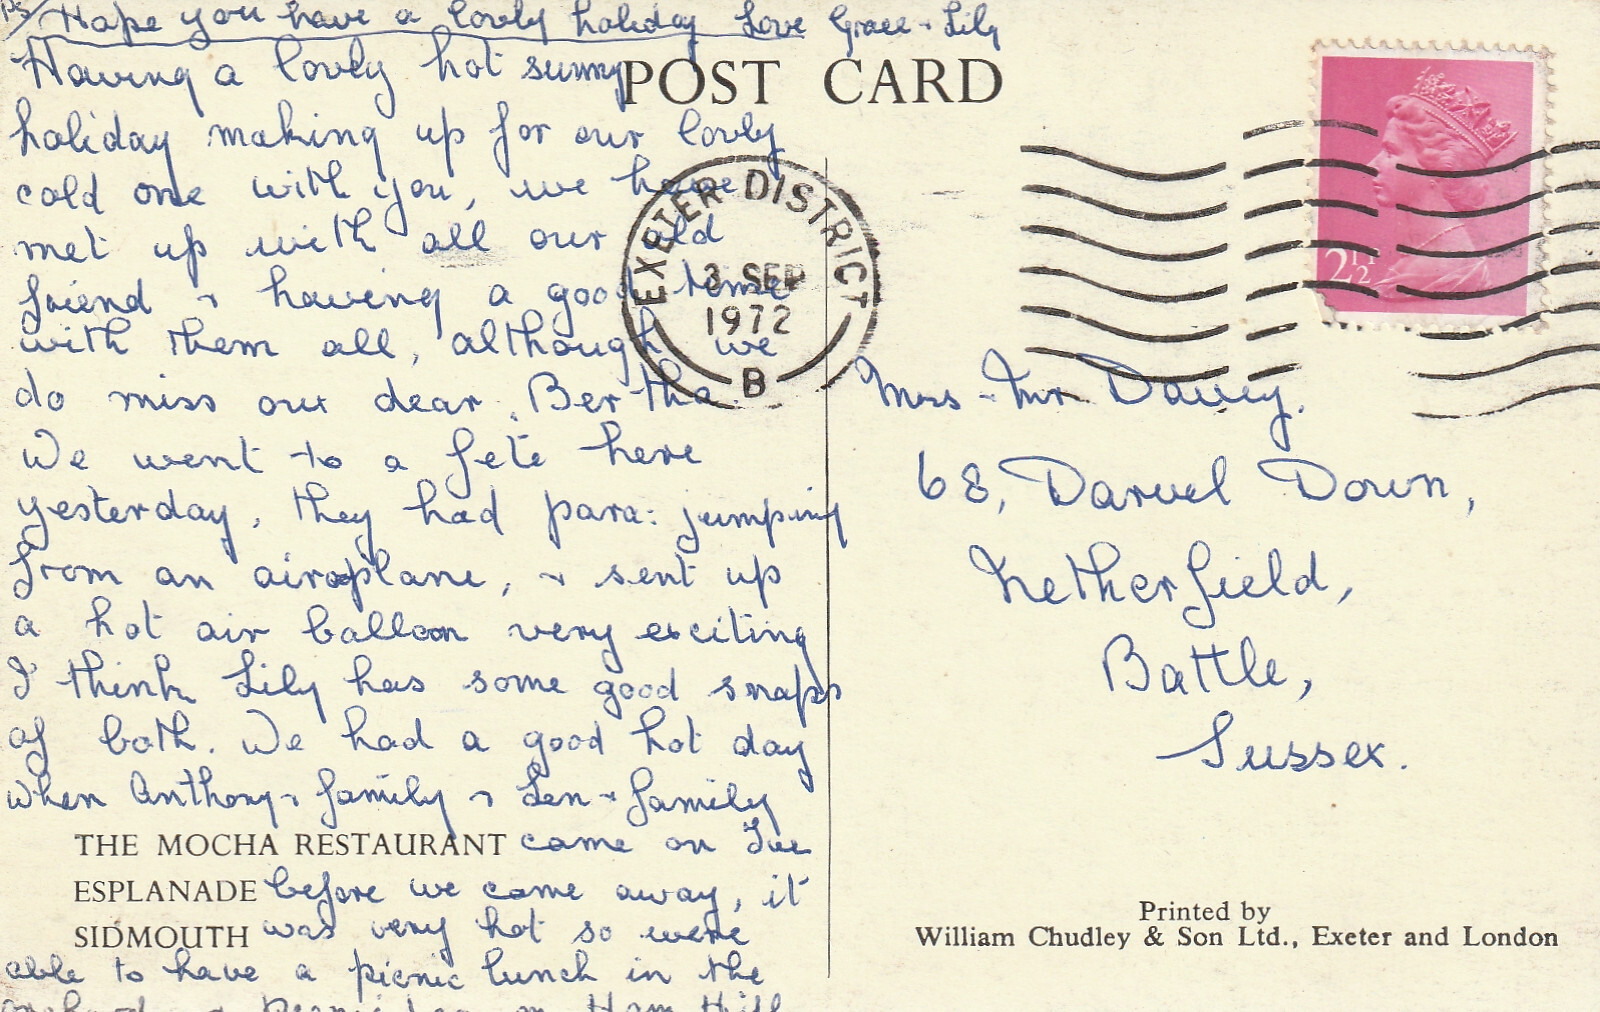 PS/ Hope you have a lovely holiday Love Grace + Lily
Having a lovely hot sunny
holiday making up for our lovly
cold one with you, we have
met up with all our old
friend + having a good time
with them all, although we
do miss our dear Bertha.
We went to a fete here
yesterday, they had para: jumping
from an airoplane, + sent up
a hot air balloon very exciting
I think Lily has some good snaps
of both. We had a good hot day
when Anthony + family + Len + family
came on Tue
before we came away, it
was very hot so were
able to have a picnic lunch in the
orchard + picnic tea on Ham Hill
THE MOCHA RESTAURANT
ESPLANADE
SIDMOUTH
POST CARD
EXETER DISTRICT
3 SEP
1972
B
2½
Mrs + Mr Davey.
68, Darvel Down,
Netherfield,
Battle,
Sussex.
Printed by
William Chudley & Son Ltd., Exeter and London